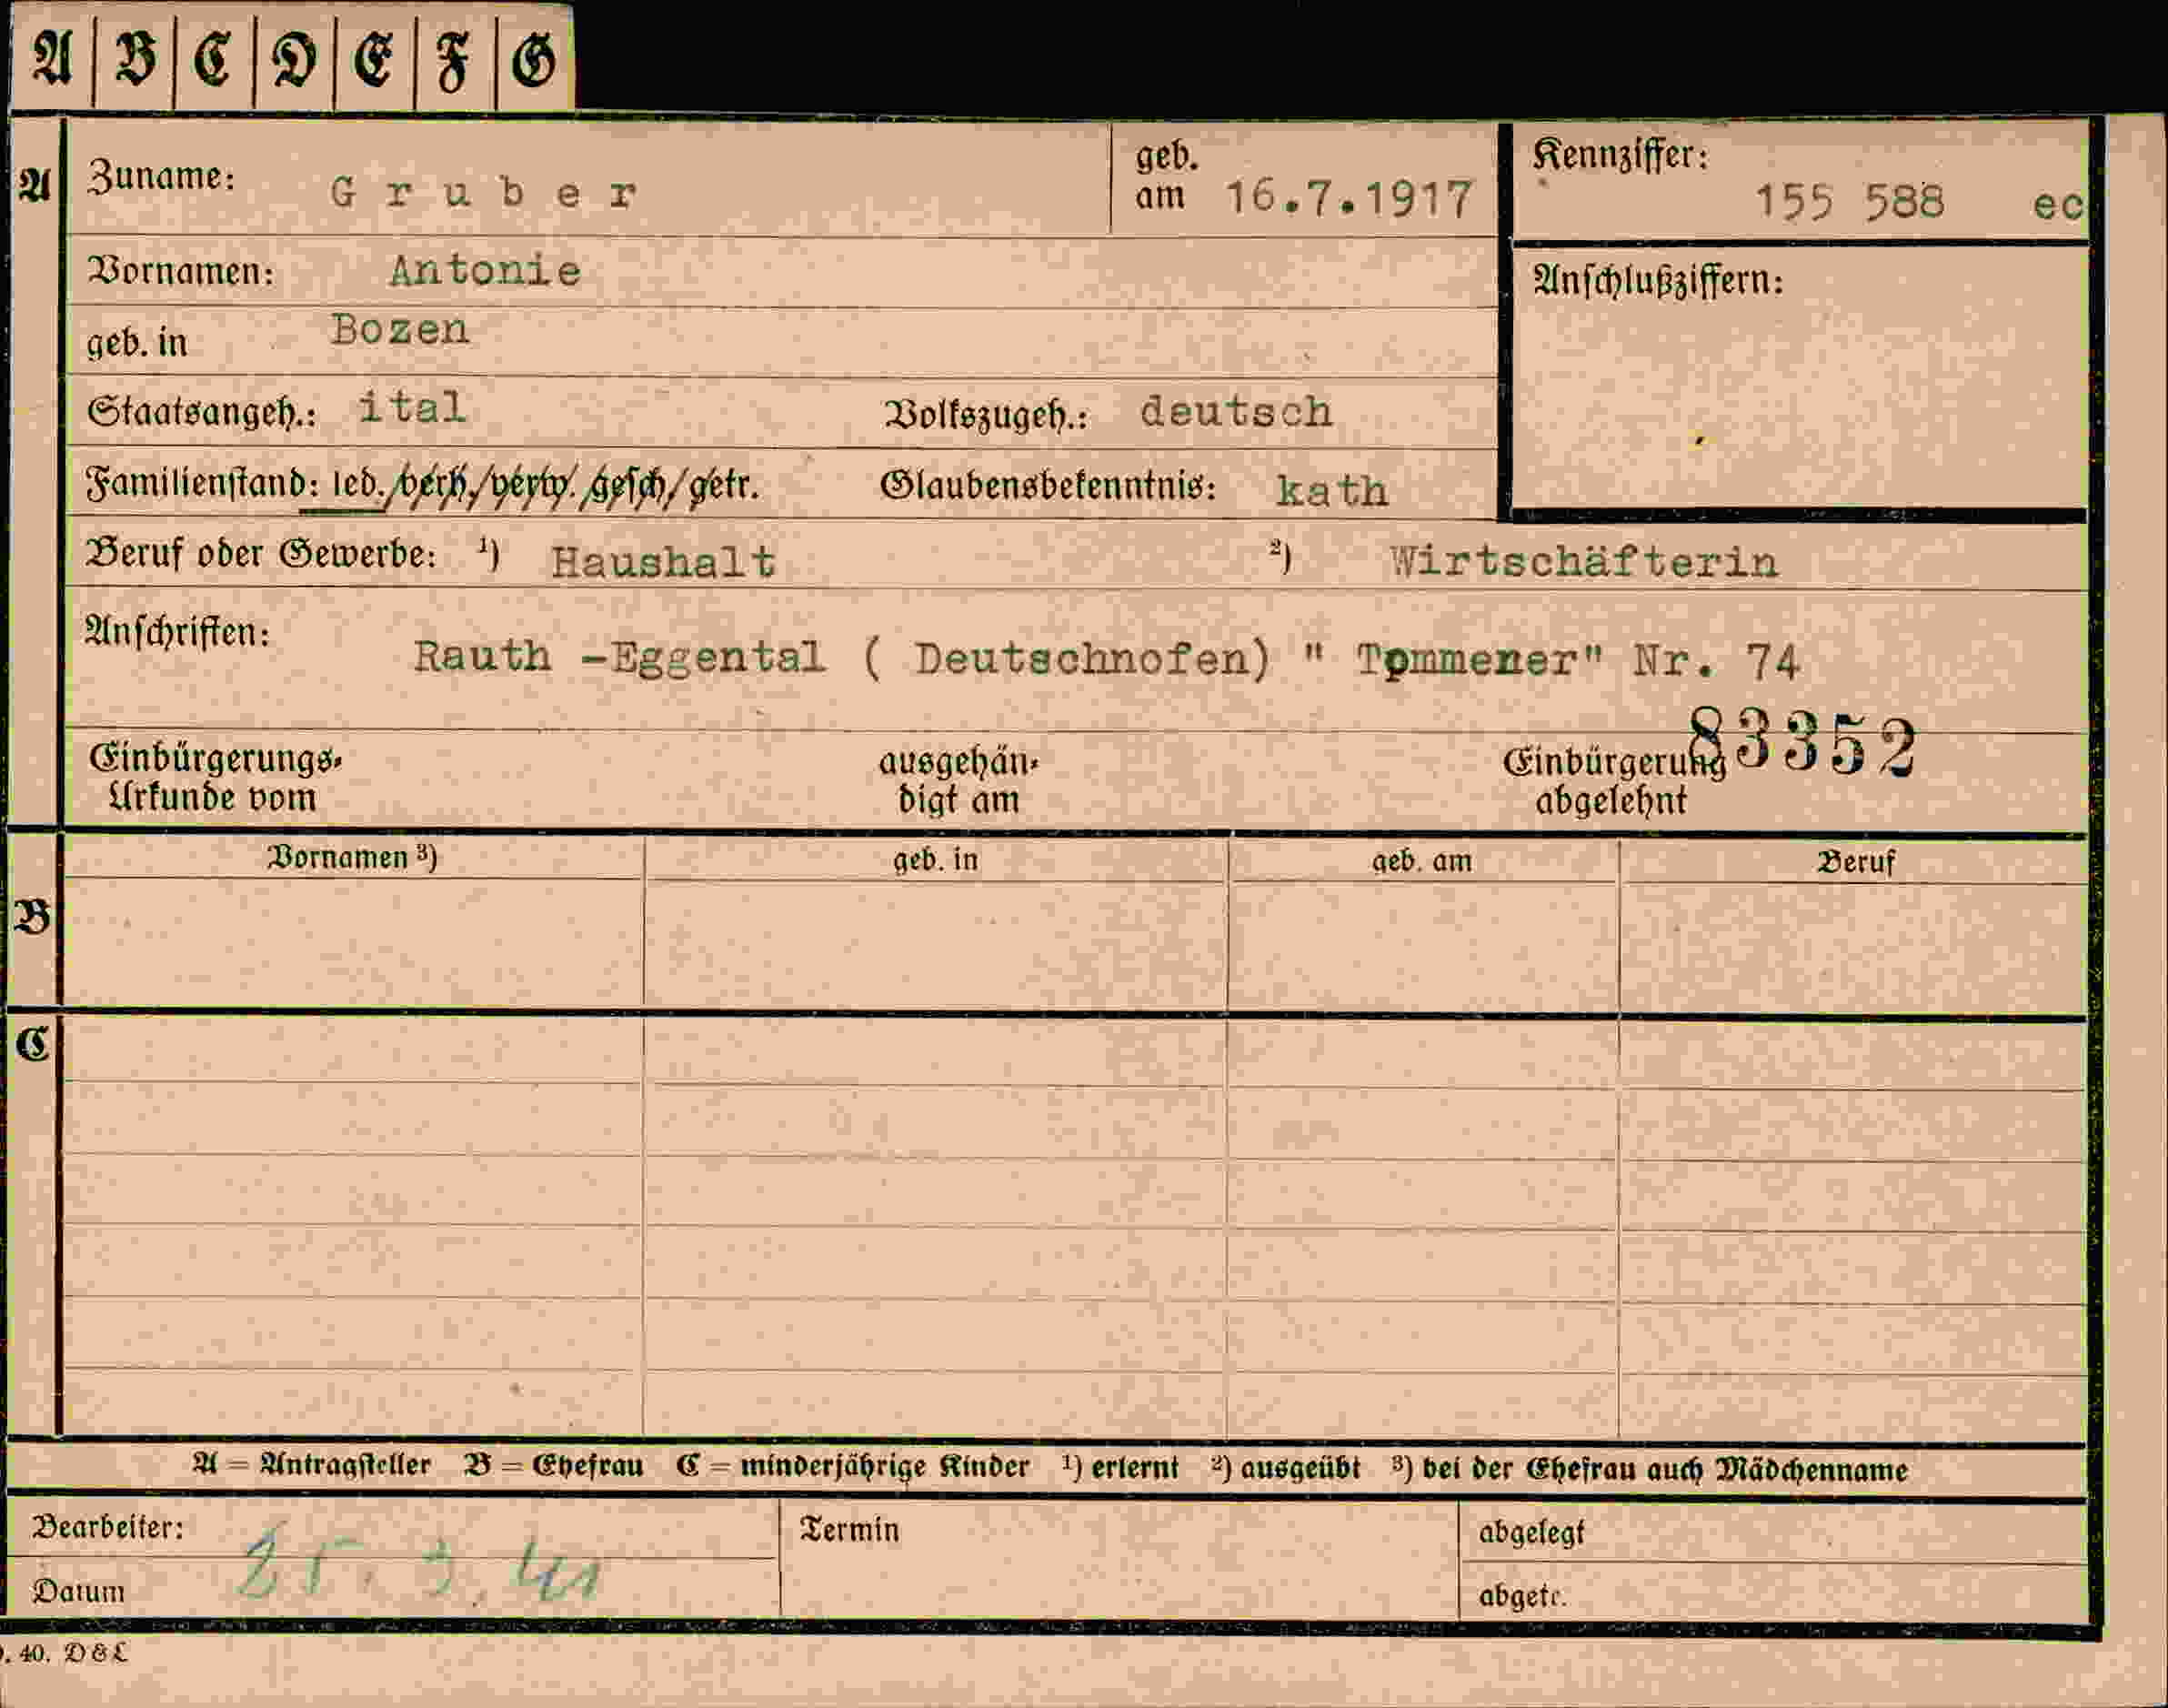 A B C D E F G
A Zuname: Gruber geb. am 16.7.1917 Kennziffer: 155 588 ec
Vornamen: Antonie Anschlußziffern:
geb. in Bozen
Staatsangeh.: ital Volkszugeh.: deutsch
Familienstand: led./verh./verw./gesch/getr. Glaubensbekenntnis: kath
Beruf oder Gewerbe: ¹) Haushalt ²) Wirtschäfterin
Anschriften: Rauth -Eggental ( Deutschnofen) " Tommener" Nr. 74
83352
Einbürgerungs- ausgehän- Einbürgerung
Urkunde vom digt am abgelehnt
Vornamen ³) geb. in geb. am Beruf
B
C
A = Antragsteller B = Ehefrau C = minderjährige Kinder ¹) erlernt ²) ausgeübt ³) bei der Ehefrau auch Mädchenname
Bearbeiter: Termin abgelegt
Datum 25. 3. 41 abgetr.
. 40. D&L